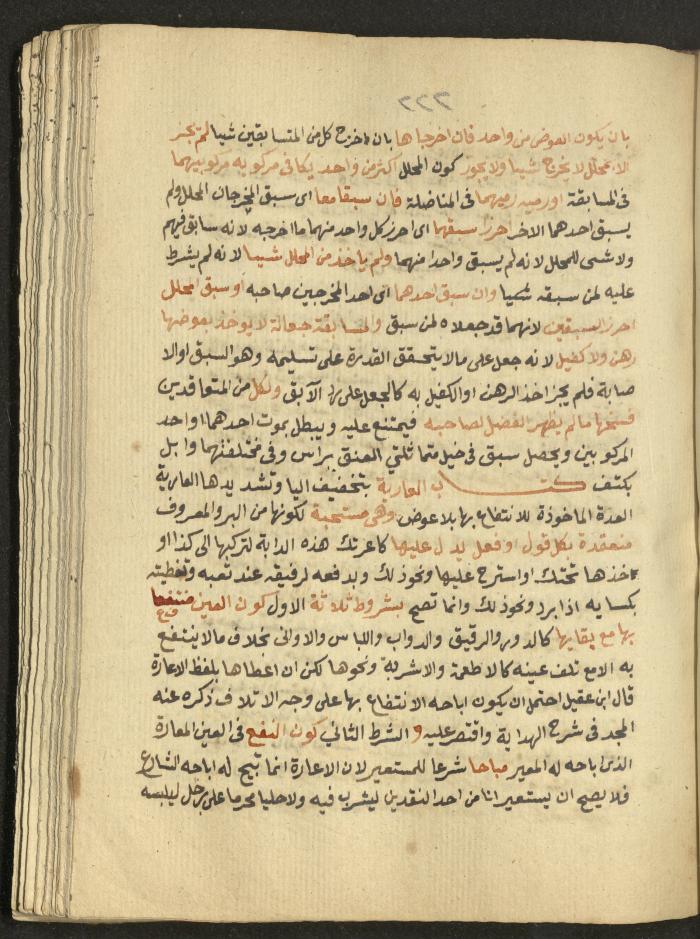 ٢٢٢
بان يكون العوض من واحد فان اخرجا ها بان اخرج كل من المتسابقين شيا لم يجز
الا بمحلل لا يخرج شيا ولا يجوز كون المحلل اكثر من واحد يكافي مركوبه مركوبيهما
في المسابقة اورميه رميهما في المناضلة فان سبقا معا اى سبق المخرجان المحلل ولم
يسبق احدهما الاخر احرزا سبقهما اى احرز كل واحد منهما ما اخرجه لانه سابق فيهم
ولا شى للمحلل لانه لم يسبق واحدا منهما ولم ياخذ من المحلل شيا لانه لم يشرط
عليه لمن سبقه شيا وان سبق احدهما اى احد المخرجين صاحبه او سبق المحلل
احرز السبقين لانهما قد جعلاه لمن سبق والمسابقة جعالة لا يوخذ بعوضها
رهن ولا كفيل لانه جعل على ما لا يتحقق القدرة على تسليمه وهو السبق او الا
صابة فلم يجز اخذ الرهن او الكفيل به كالجعل على رد الآبق ولكل من المتعاقدين
فسخها ما لم يظهر الفضل لصاحبه فيمتنع عليه ويبطل بموت احدهما او احد
المركوبين ويحصل سبق في خيل متماثلتي العنق براس وفي مختلفتهما وابل
بكتف كتاب العارية بتخفيف اليا وتشديدها العارية
العدة الماخوذة للانتفاع بها بلا عوض وهي مستحبة لكونها من البر والمعروف
منعقدة بكل قول او فعل يدل عليها كاعرتك هذه الدابة لتركبها الى كذا او
خذها تحتك او استرح عليها ونحو ذلك وبدفعه لرفيقه عند تعبه وتغطيته
بكسايه اذا برد ونحو ذلك وانما تصح بشروط ثلاثة الاول كون العين منتفعا
بها مع بقايها كالدور والرقيق والدواب واللباس والاواني بخلاف ما لا ينتفع
به الا مع تلف عينه كالاطعمة والاشربة ونحوها لكن ان اعطاها بلفظ الاعارة
قال ابن عقيل احتمل ان يكون اباحه الانتفاع بها على وجه الاتلاف ذكره عنه
المجد في شرح الهداية واقتصر عليه و الشرط الثاني كون النفع في العين المعارة
الذى اباحه له المعير مباحا شرعا للمستعير لان الاعارة انما تبيح له اباحه الشارع
فلا يصح ان يستعير انا من احد النقدين ليشرب فيه ولا حليا محرما على رجل ليلبسه